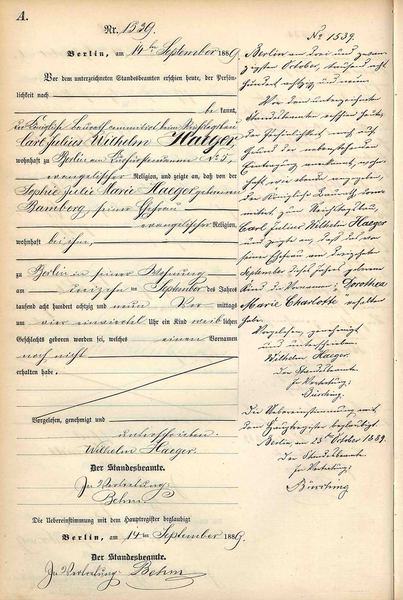 A.
Nr. 1539.
Berlin, am 14ten September 1889.
Vor dem unterzeichneten Standesbeamten erschien heute, der Persön-
lichkeit nach
be kannt,
der Königliche Baurath
Carl Julius Wilhelm Haeger,
wohnhaft zu Berlin
evangelischer Religion, und zeigte an, daß von der
Sophie Julie Marie Haeger geborenen
Bamberg, seiner Ehefrau
evangelischer Religion,
wohnhaft bei ihm,
zu Berlin in seiner Wohnung
am dreizehnten September des Jahres
tausend acht hundert achtzig und neun Vor mittags
um vier einviertel Uhr ein Kind weiblichen
Geschlechts geboren worden sei, welches einen Vornamen
noch nicht
erhalten habe.
Vorgelesen, genehmigt und
unterschrieben.
Wilhelm Haeger.
Der Standesbeamte.
In Vertretung:
Behm.
Die Uebereinstimmung mit dem Hauptregister beglaubigt
Berlin, am 14ten September 1889.
Der Standesbeamte.
In Vertretung: Behm
No 1539.
Berlin am drei und zwan-
zigsten October, tausend acht
hundert achtzig und neun
Vor dem unterzeichneten
Standesbeamten erschien heute,
der Persönlichkeit nach auf
Grund der nebenstehenden
Eintragung bekannt,
der Königliche Baurath
Carl Julius Wilhelm Haeger
und zeigte an, daß das von
seiner Ehefrau am dreizehnten
September dieses Jahres geborene
Kind die Vornamen: „Dorothea
Marie Charlotte" erhalten
habe.
Vorgelesen, genehmigt
und unterschrieben.
Wilhelm Haeger.
Der Standesbeamte
In Vertretung:
Die Uebereinstimmung mit
dem Hauptregister beglaubigt
Berlin, am 23ten October 1889.
Der Standesbeamte
In Vertretung: